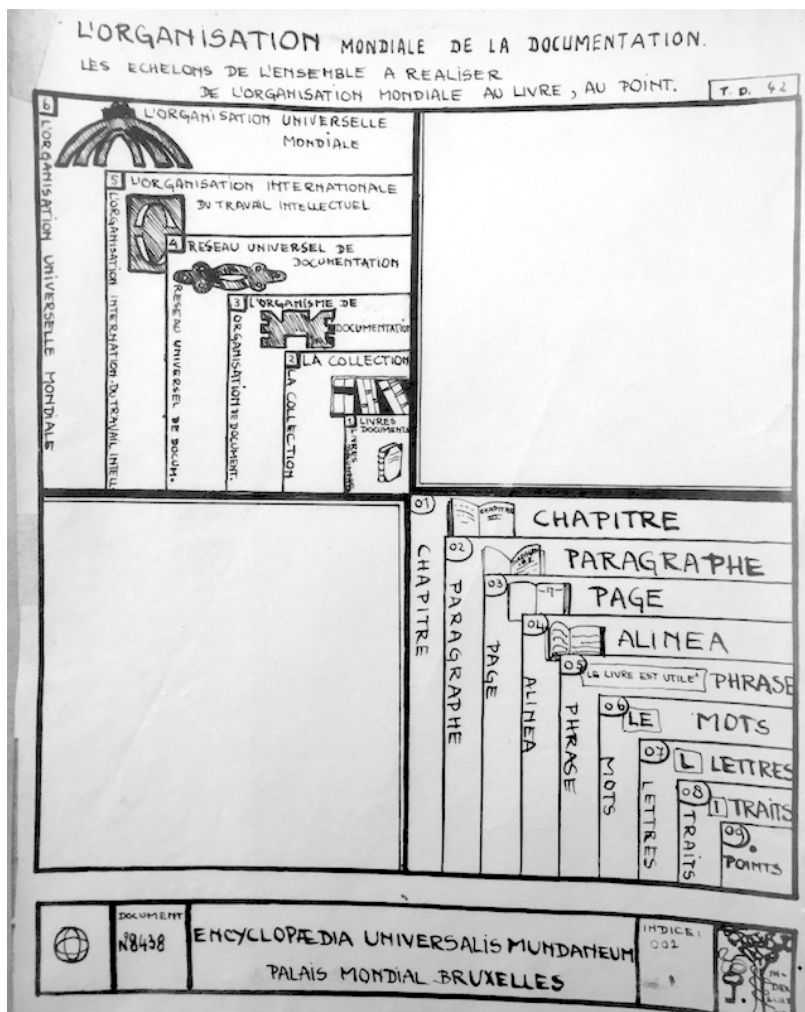 L'ORGANISATION MONDIALE DE LA DOCUMENTATION.
LES ECHELONS DE L'ENSEMBLE A REALISER
DE L'ORGANISATION MONDIALE AU LIVRE, AU POINT.
T. D. 42
6
L'ORGANISATION UNIVERSELLE
MONDIALE
L'ORGANISATION UNIVERSELLE MONDIALE
5
L'ORGANISATION INTERNATIONALE
DU TRAVAIL INTELLECTUEL
L'ORGANISATION INTERNATION. DU TRAVAIL INTELL.
4
RESEAU UNIVERSEL DE
DOCUMENTATION
RESEAU UNIVERSEL DE DOCUM.
3
L'ORGANISME DE
DOCUMENTATION
ORGANISATION DE DOCUMENT.
2
LA COLLECTION
LA COLLECTION
1
LIVRES
DOCUMENTS
LIVRES
01
CHAPITRE
CHAPITRE
CHAPITRE
02
PARAGRAPHE
PARAGRAPHE
03
-17-
PAGE
PAGE
04
ALINEA
ALINEA
05
"LE LIVRE EST UTILE"
PHRASE
PHRASE
06
LE
MOTS
MOTS
07
L
LETTRES
LETTRES
08
I
TRAITS
TRAITS
09
.
POINTS
DOCUMENT
N°8438
ENCYCLOPÆDIA UNIVERSALIS MUNDANEUM
PALAIS MONDIAL-BRUXELLES
INDICE:
002